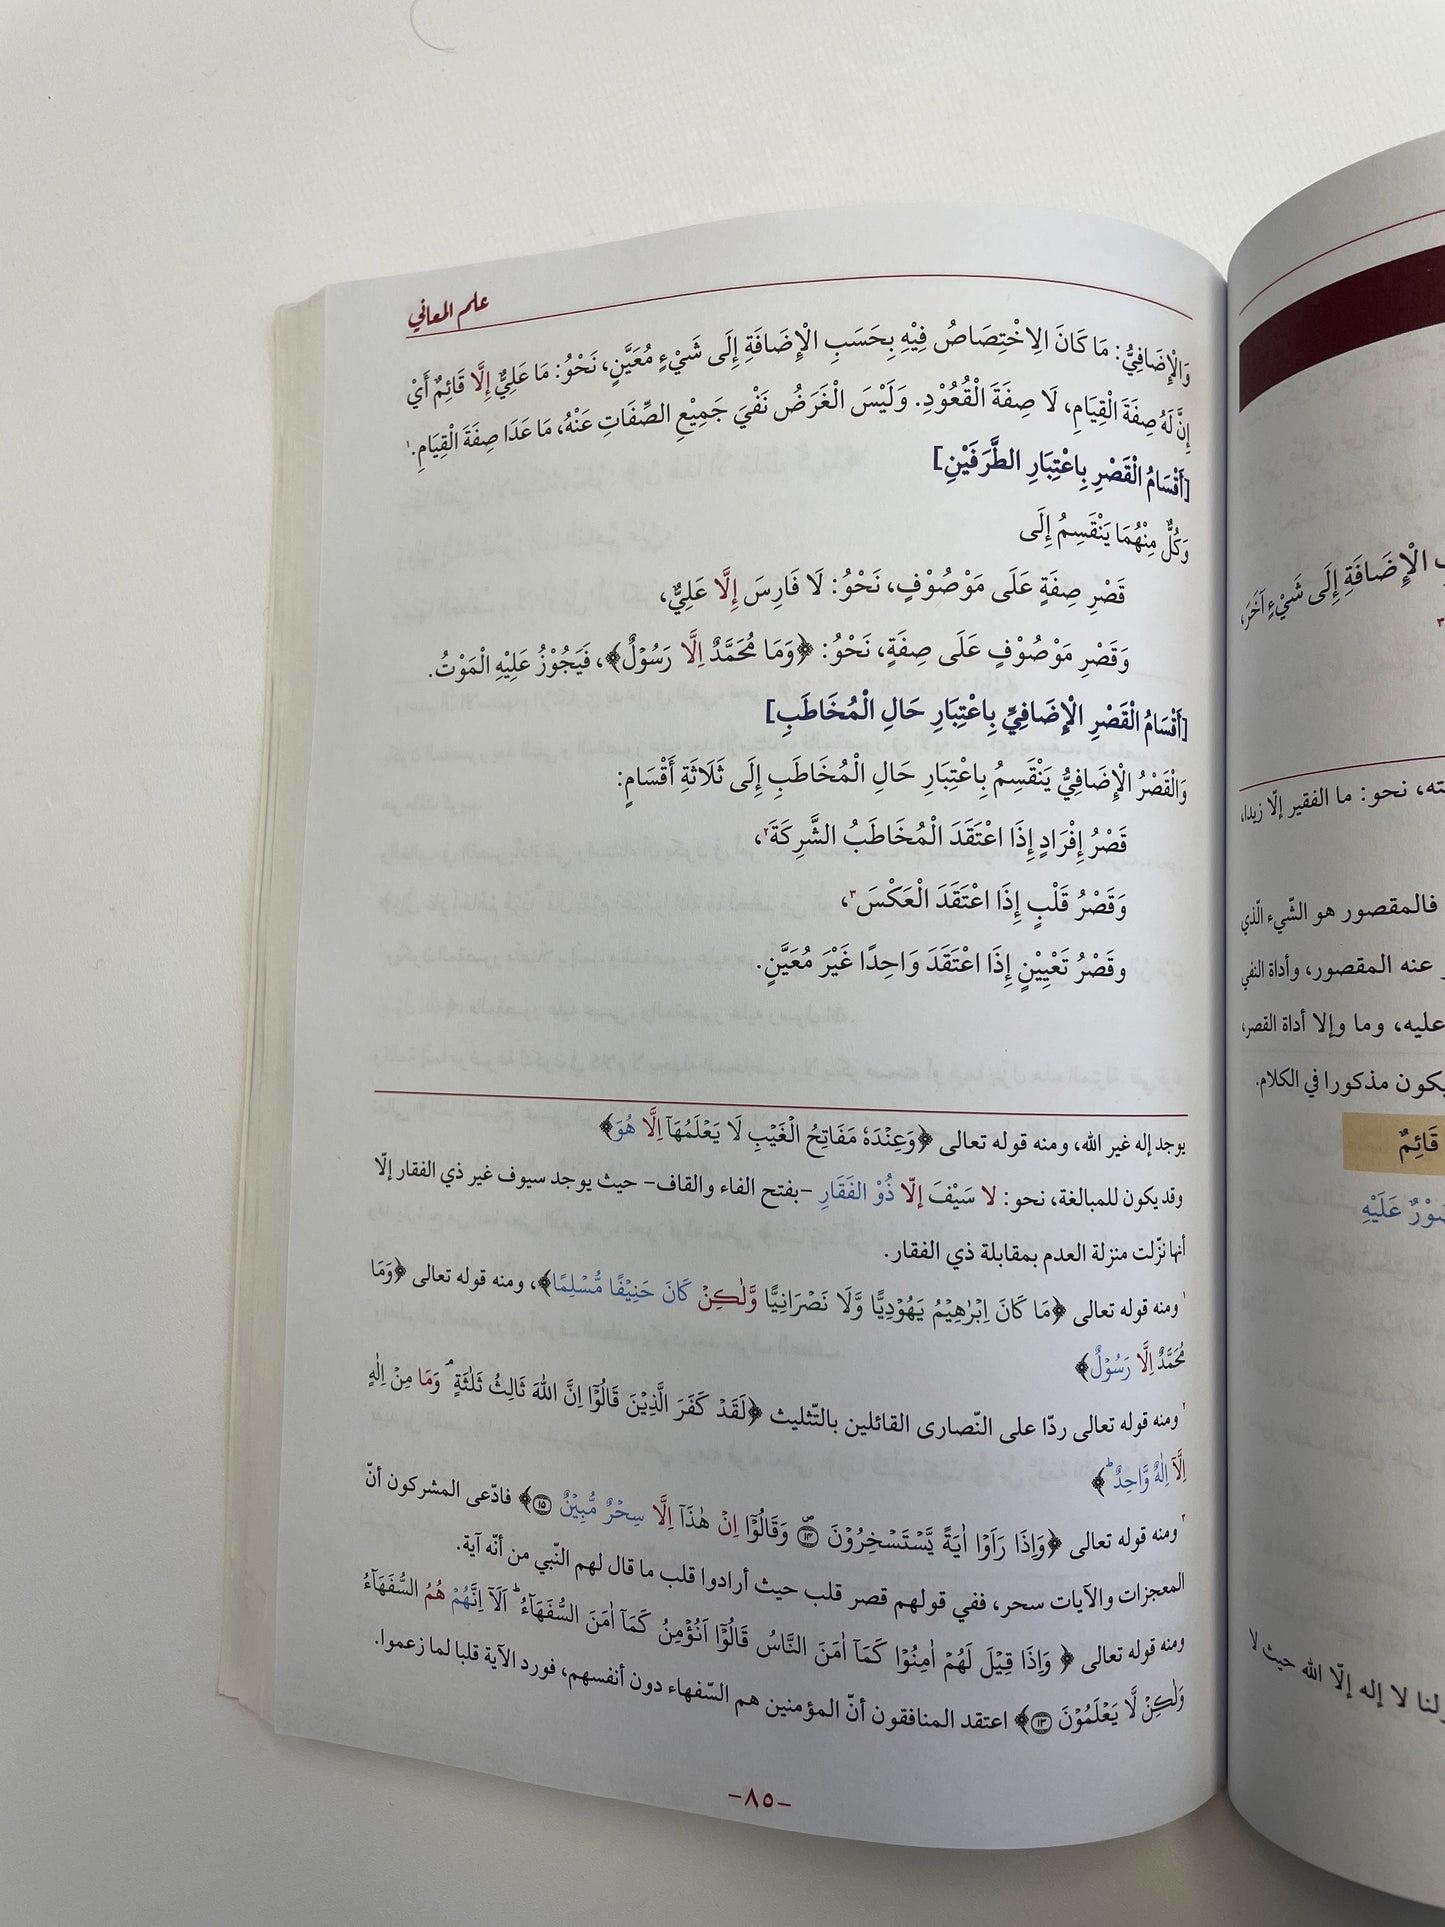 علم المعاني
وَالْإِضَافِيُّ: مَا كَانَ الِاخْتِصَاصُ فِيْهِ بِحَسَبِ الْإِضَافَةِ إِلَى شَيْءٍ مُعَيَّنٍ، نَحْوُ: مَا عَلِيٌّ إِلَّا قَائِمٌ أَيْ
إِنَّ لَهُ صِفَةَ الْقِيَامِ، لَا صِفَةَ الْقُعُوْدِ. وَلَيْسَ الْغَرَضُ نَفْيَ جَمِيْعِ الصِّفَاتِ عَنْهُ، مَا عَدَا صِفَةَ الْقِيَامِ.١
[أَقْسَامُ الْقَصْرِ بِاعْتِبَارِ الطَّرَفَيْنِ]
وَكُلٌّ مِنْهُمَا يَنْقَسِمُ إِلَى
قَصْرِ صِفَةٍ عَلَى مَوْصُوْفٍ، نَحْوُ: لَا فَارِسَ إِلَّا عَلِيٌّ،
وَقَصْرِ مَوْصُوْفٍ عَلَى صِفَةٍ، نَحْوُ: ﴿وَمَا مُحَمَّدٌ اِلَّا رَسُوْلٌ﴾، فَيَجُوْزُ عَلَيْهِ الْمَوْتُ.
[أَقْسَامُ الْقَصْرِ الْإِضَافِيِّ بِاعْتِبَارِ حَالِ الْمُخَاطَبِ]
وَالْقَصْرُ الْإِضَافِيُّ يَنْقَسِمُ بِاعْتِبَارِ حَالِ الْمُخَاطَبِ إِلَى ثَلَاثَةِ أَقْسَامٍ:
قَصْرُ إِفْرَادٍ إِذَا اعْتَقَدَ الْمُخَاطَبُ الشَّرِكَةَ٢،
وَقَصْرُ قَلْبٍ إِذَا اعْتَقَدَ الْعَكْسَ٣،
وقَصْرُ تَعْيِيْنٍ إِذَا اعْتَقَدَ وَاحِدًا غَيْرَ مُعَيَّنٍ.
يوجد إله غير الله، ومنه قوله تعالى ﴿وَعِنْدَهٗ مَفَاتِحُ الْغَيْبِ لَا يَعْلَمُهَآ اِلَّا هُوَ﴾
وقد يكون للمبالغة، نحو: لا سَيْفَ إلّا ذُوْ الفَقَارِ -بفتح الفاء والقاف- حيث يوجد سيوف غير ذي الفقار إلّا
أنها نزّلت منزلة العدم بمقابلة ذي الفقار.
١ ومنه قوله تعالى ﴿مَا كَانَ اِبْرٰهِيْمُ يَهُوْدِيًّا وَّلَا نَصْرَانِيًّا وَّلٰكِنْ كَانَ حَنِيْفًا مُّسْلِمًا﴾، ومنه قوله تعالى ﴿وَمَا
مُحَمَّدٌ اِلَّا رَسُوْلٌ﴾
٢ ومنه قوله تعالى ردّا على النّصارى القائلين بالتّثليث ﴿لَقَدْ كَفَرَ الَّذِيْنَ قَالُوْٓا اِنَّ اللهَ ثَالِثُ ثَلٰثَةٍ ۘ وَمَا مِنْ اِلٰهٍ
اِلَّآ اِلٰهٌ وَّاحِدٌ ؕ﴾
٣ ومنه قوله تعالى ﴿وَاِذَا رَاَوْا اٰيَةً يَّسْتَسْخِرُوْنَ ۝١٤ وَقَالُوْٓا اِنْ هٰذَآ اِلَّا سِحْرٌ مُّبِيْنٌ ۝١٥﴾ فادّعى المشركون أنّ
المعجزات والآيات سحر، ففي قولهم قصر قلب حيث أرادوا قلب ما قال لهم النّبي من أنّه آية.
ومنه قوله تعالى ﴿ وَاِذَا قِيْلَ لَهُمْ اٰمِنُوْا كَمَآ اٰمَنَ النَّاسُ قَالُوْٓا اَنُؤْمِنُ كَمَآ اٰمَنَ السُّفَهَآءُ ؕ اَلَآ اِنَّهُمْ هُمُ السُّفَهَآءُ
وَلٰكِنْ لَّا يَعْلَمُوْنَ ۝١٣﴾ اعتقد المنافقون أنّ المؤمنين هم السّفهاء دون أنفسهم، فورد الآية قلبا لما زعموا.
-٨٥-
الْإِضَافَةِ إِلَى شَيْءٍ آخَرَ،
٣
نحو: ما الفقير إلّا زيدا،
فالمقصور هو الشّيء الّذي
عنه المقصور، وأداة النفي
عليه، وما وإلا أداة القصر،
يكون مذكورا في الكلام.
قَائِمٌ
عَلَيْهِ
لا إله إلّا الله حيث لا